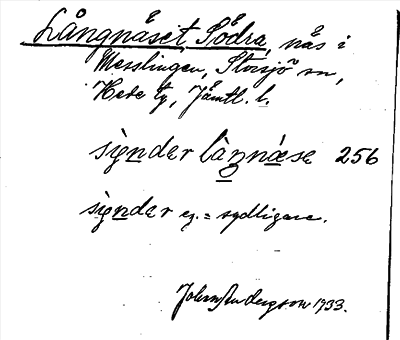 Långnäset, Södra, näs i
Messlingen, Storsjö sn,
Hede tg, Jämtl. l.
signder làngnä̀se 256
signder eg. = sydligare.
John Andersson 1933.